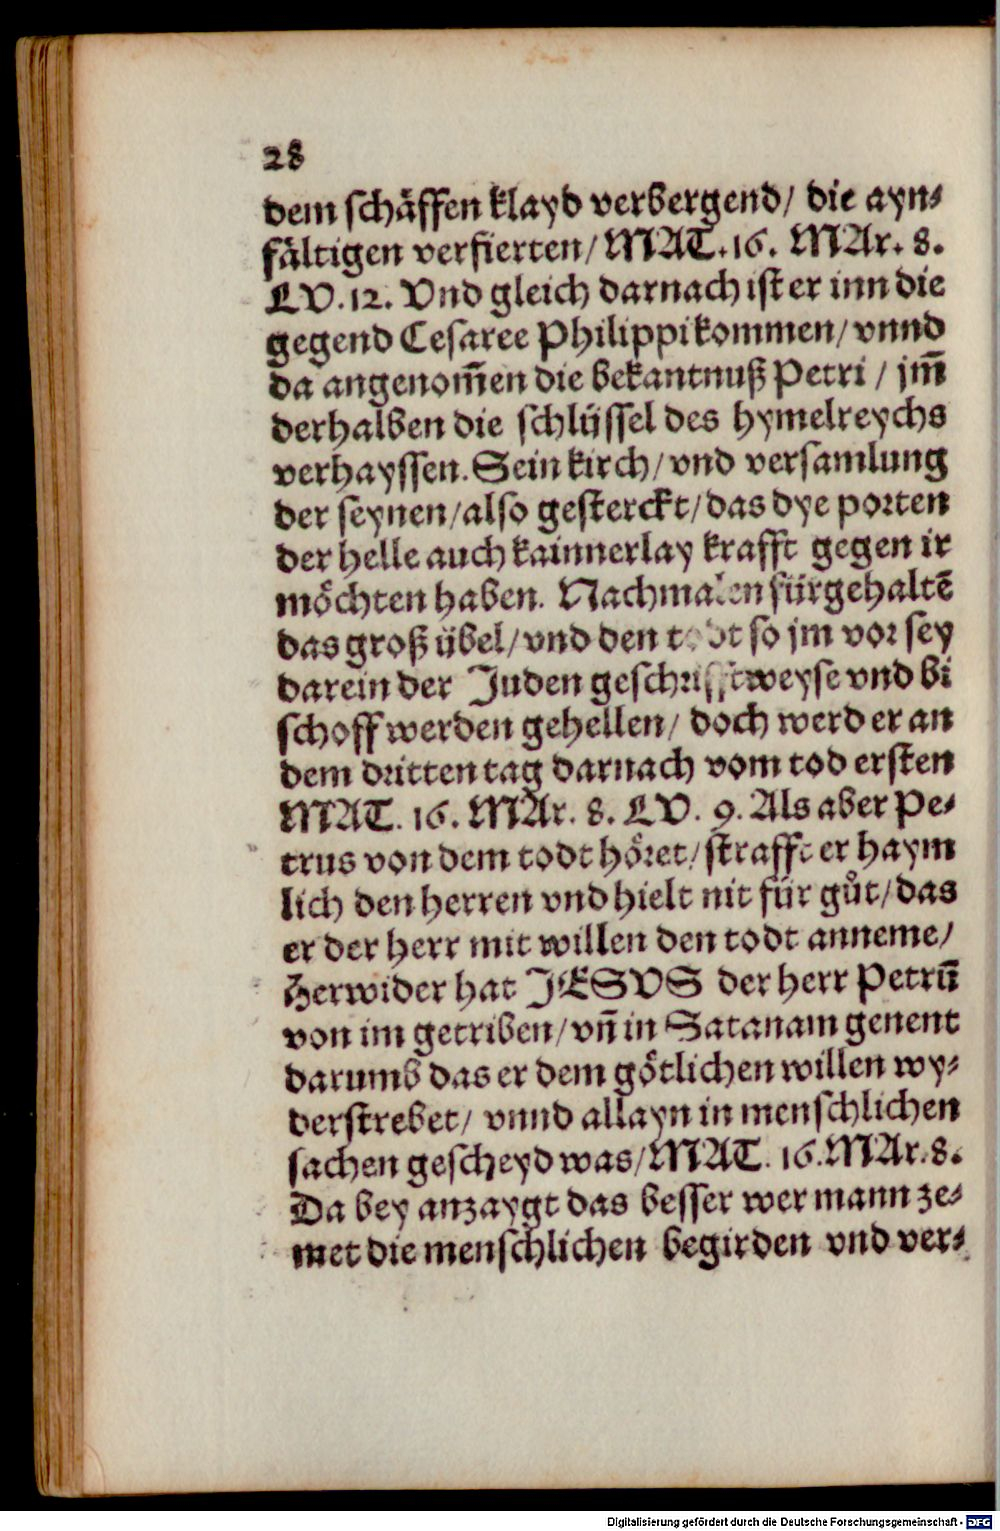 28
dem schäffen klayd verbergend/ die ayn⸗
fältigen verfierten/ MAT. 16. MAr. 8.
LV. 12. Vnd gleich darnach ist er inn die
gegend Cesaree Philippi kommen/ vnnd
da angenom̄en die bekantnuß Petri / jm̄
derhalben die schlüssel des hymelreychs
verhayssen. Sein kirch/ vnd versamlung
der seynen/ also gesterckt/ das dye porten
der helle auch kainnerlay krafft gegen ir
möchten haben. Nachmalen fürgehaltē
das groß übel/ vnd den todt so jm vor sey
darein der Juden geschrifftweyse vnd bi
schoff werden gehellen/ doch werd er an
dem dritten tag darnach vom tod ersten
MAT. 16. MAr. 8. LV. 9. Als aber Pe⸗
trus von dem todt höret/ strafft er haym
lich den herren vnd hielt nit für gůt/ das
er der herr mit willen den todt anneme/
Herwider hat JESVS der herr Petrū
von im getriben/ vn̄ in Satanam genent
darumb das er dem götlichen willen wy⸗
derstrebet/ vnnd allayn in menschlichen
sachen gescheyd was/ MAT. 16. MAr. 8.
Da bey anzaygt das besser wer mann ze⸗
met die menschlichen begirden vnd ver⸗
Digitalisierung gefördert durch die Deutsche Forschungsgemeinschaft - DFG